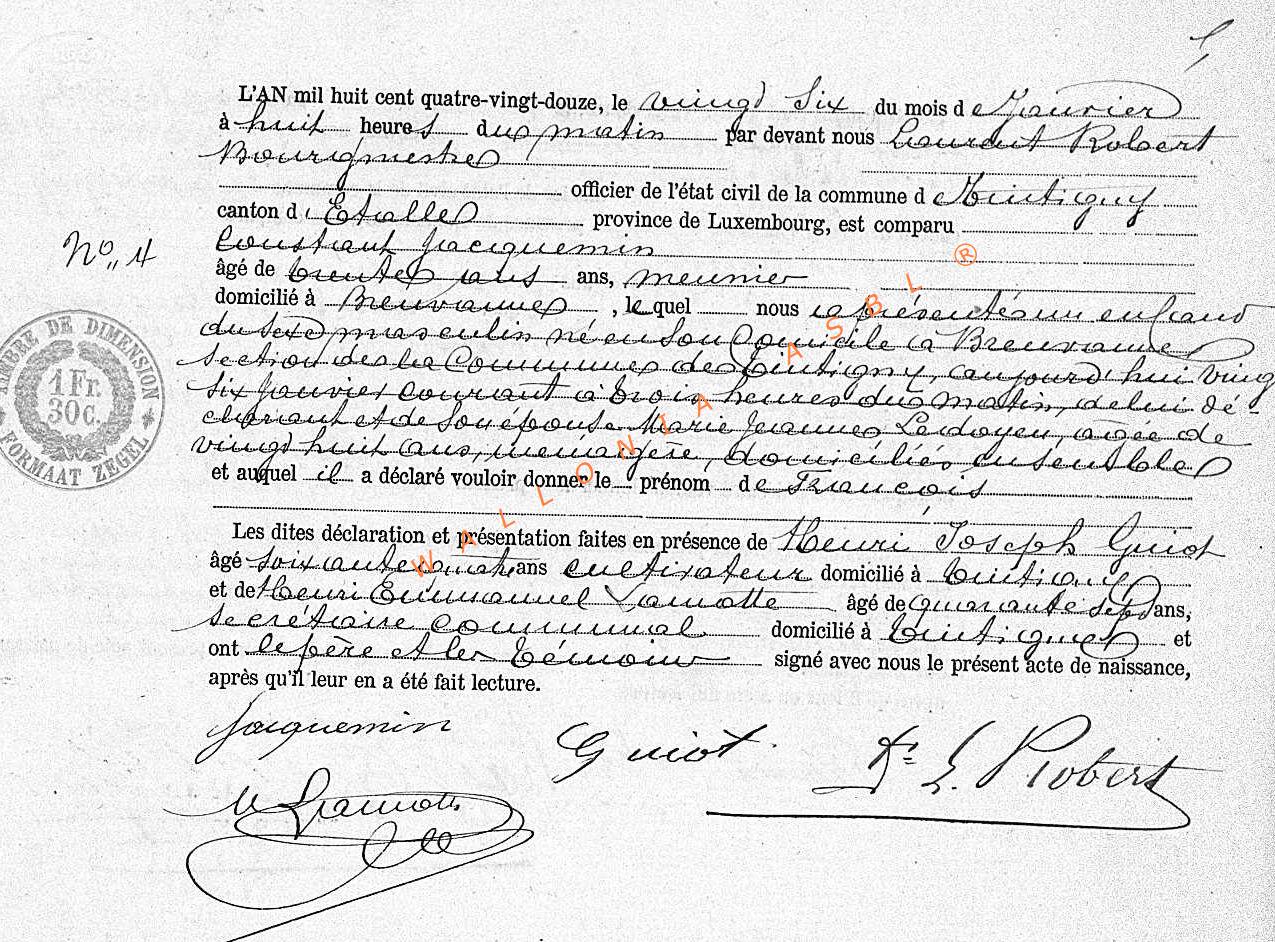 L'AN mil huit cent quatre-vingt-douze, le vingt six du mois de Janvier
à huit heures du matin par devant nous Laurent Robert
Bourgmestre
officier de l'état civil de la commune d Tintigny
canton d' Etalle province de Luxembourg, est comparu
Constant Jacquemin
No. 4
âgé de trente ans ans, meunier
domicilié à Breuvanne, le quel nous a présenté un enfant
du sexe masculin né en son domicile à Breuvanne
section de la Commune de Tintigny, aujourd'hui vingt
six Janvier courant à trois heures du matin, de lui dé-
clarant et de son épouse Marie Jeanne Ledoyen, agée de
vingt huit ans, ménagère, domiciliés ensemble
et auquel il a déclaré vouloir donner le prénom de François
Les dites déclaration et présentation faites en présence de Henri Joseph Guiot
âgé soixante ans cultivateur domicilié à Tintigny
et de Henri Emmanuel Lamotte âgé de quarante sept ans,
secrétaire communal domicilié à Tintigny et
ont le père et les témoins signé avec nous le présent acte de naissance,
après qu'il leur en a été fait lecture.
Jacquemin
Guiot
Dr L. Robert
Lamotte
TIMBRE DE DIMENSION
1 Fr.
30c.
FORMAAT ZEGEL
WALLONIA ASBL ®